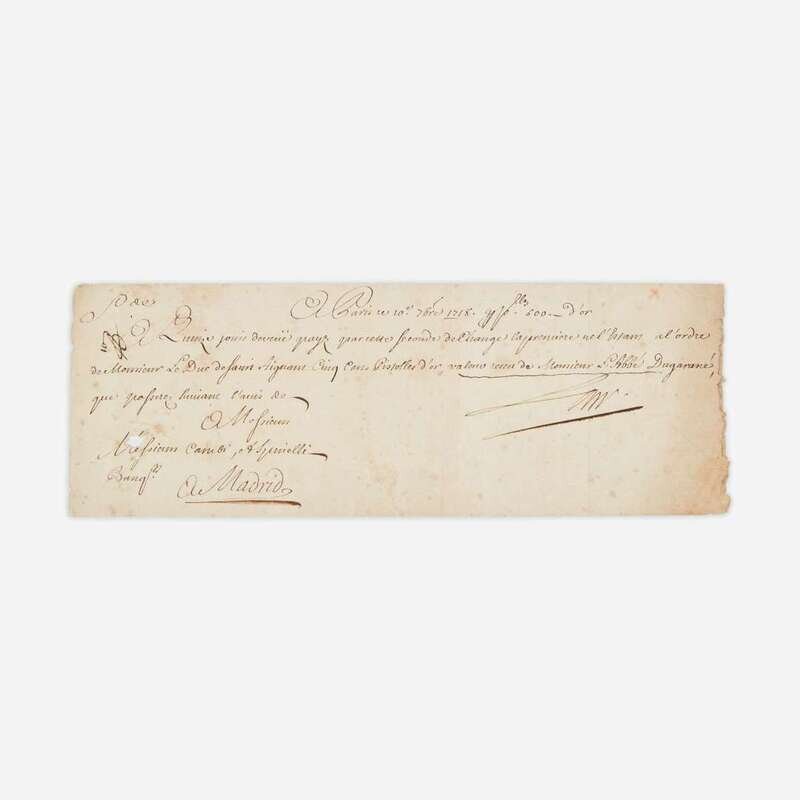 A Paris ce 10e 7bre 1718. pp lles 500 — d'or
A Quinze jours de veüe payez par cette seconde de Change la premiere ne l'estant a l'ordre
de Monsieur Le Duc de Saint Aignant Cinq Cens Pistolles d'or, valeur receu de Monsieur L'Abbé Dugarané,
que passerez suivant l'avis de
Law
A Messieurs
Messieurs et Spinelli
Banqrs
A Madrid